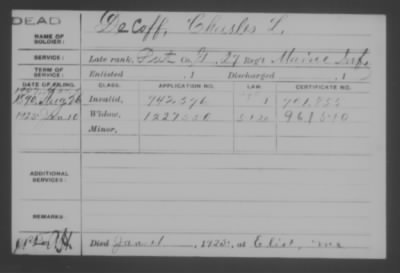 DEAD
NAME OF SOLDIER: DeCoff, Charles L.
SERVICE: Late rank, Pvt Co. 27 Reg't Maine Inf
TERM OF SERVICE: Enlisted , 1 Discharged , 1
DATE OF FILING. CLASS. APPLICATION NO. LAW. CERTIFICATE NO.
1890, Aug 26 Invalid, 942,576 701,855
1925 Widow, 1227550
Minor,
ADDITIONAL SERVICES:
REMARKS:
Died Jan , 1925, at Eliot, Me